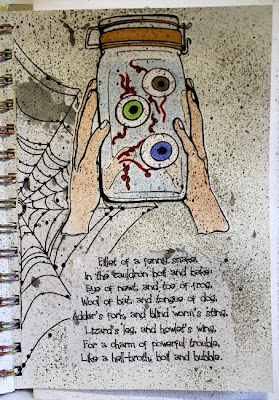 Fillet of a fenny snake,
In the cauldron boil and bake;
Eye of newt, and toe of frog,
Wool of bat, and tongue of dog,
Adder's fork, and blind worm's sting,
Lizard's leg, and howlet's wing,
For a charm of powerful trouble,
Like a hell-broth, boil and bubble.